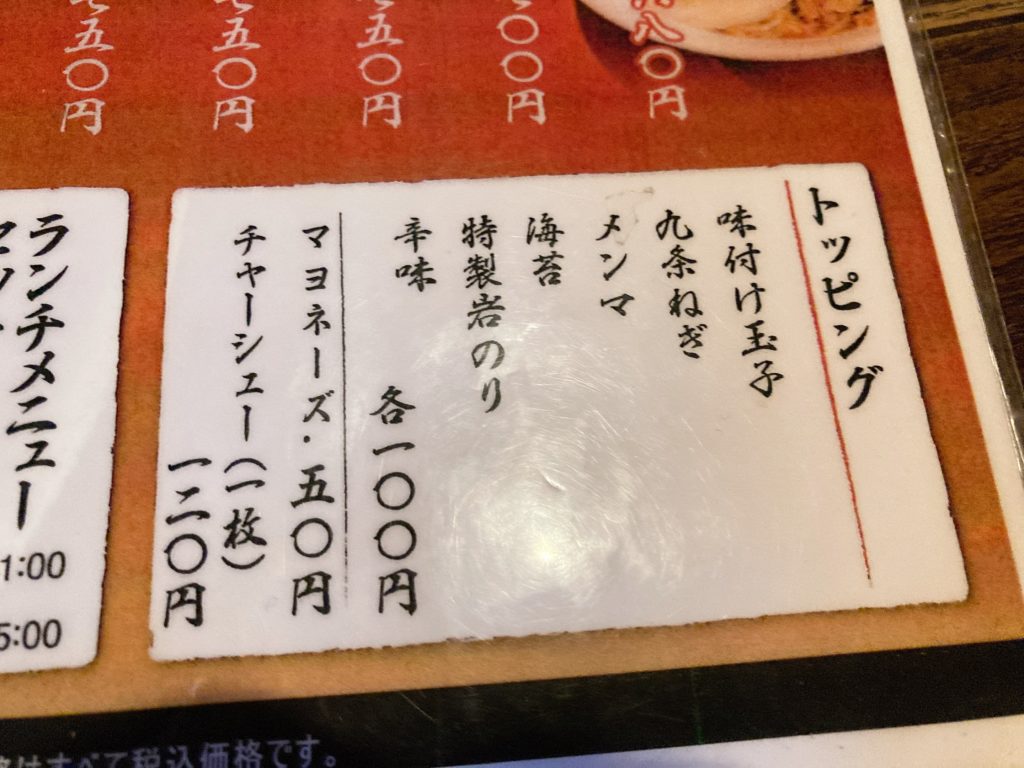 五〇円
五〇円
五〇円
〇〇円
八〇円
トッピング
味付け玉子
九条ねぎ
メンマ
海苔
特製岩のり
辛味
各一〇〇円
マヨネーズ・五〇円
チャーシュー(一枚)
一二〇円
ランチメニュー
1:00
5:00
はすべて税込価格です。